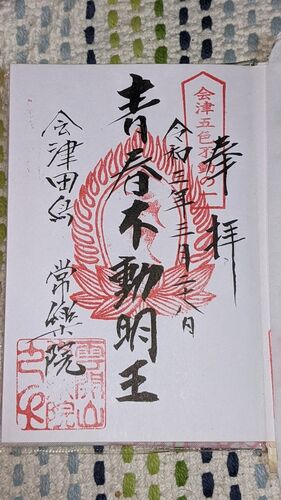 会津五色不動の一
奉拝
令和三年三月二八日
青春不動明王
会津田島 常楽院